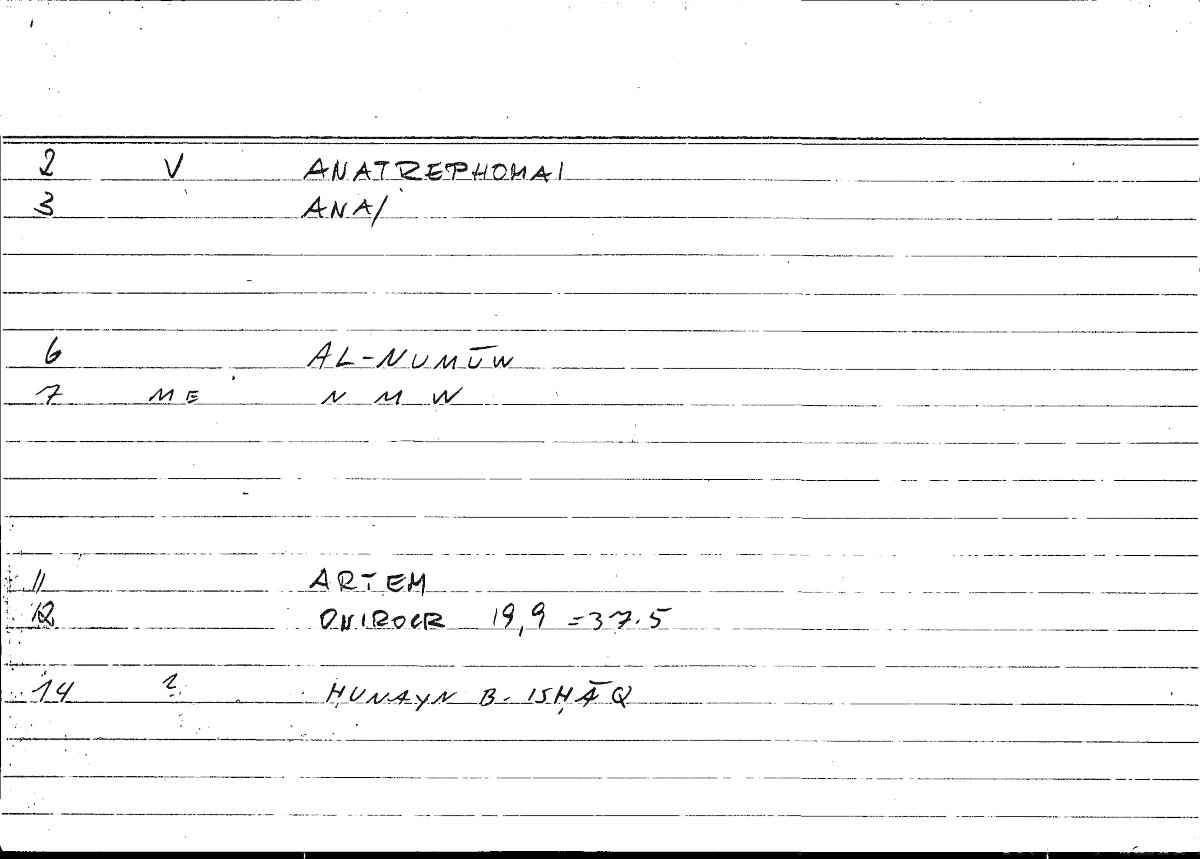 2 V ANATREPHOMAI
3 ANA/
6 AL-NUMŪW
7 ME N M W
11 ARTEM
12 ONIROCR 19,9 =37.5
14 ? ḤUNAYN B. ISḤĀQ